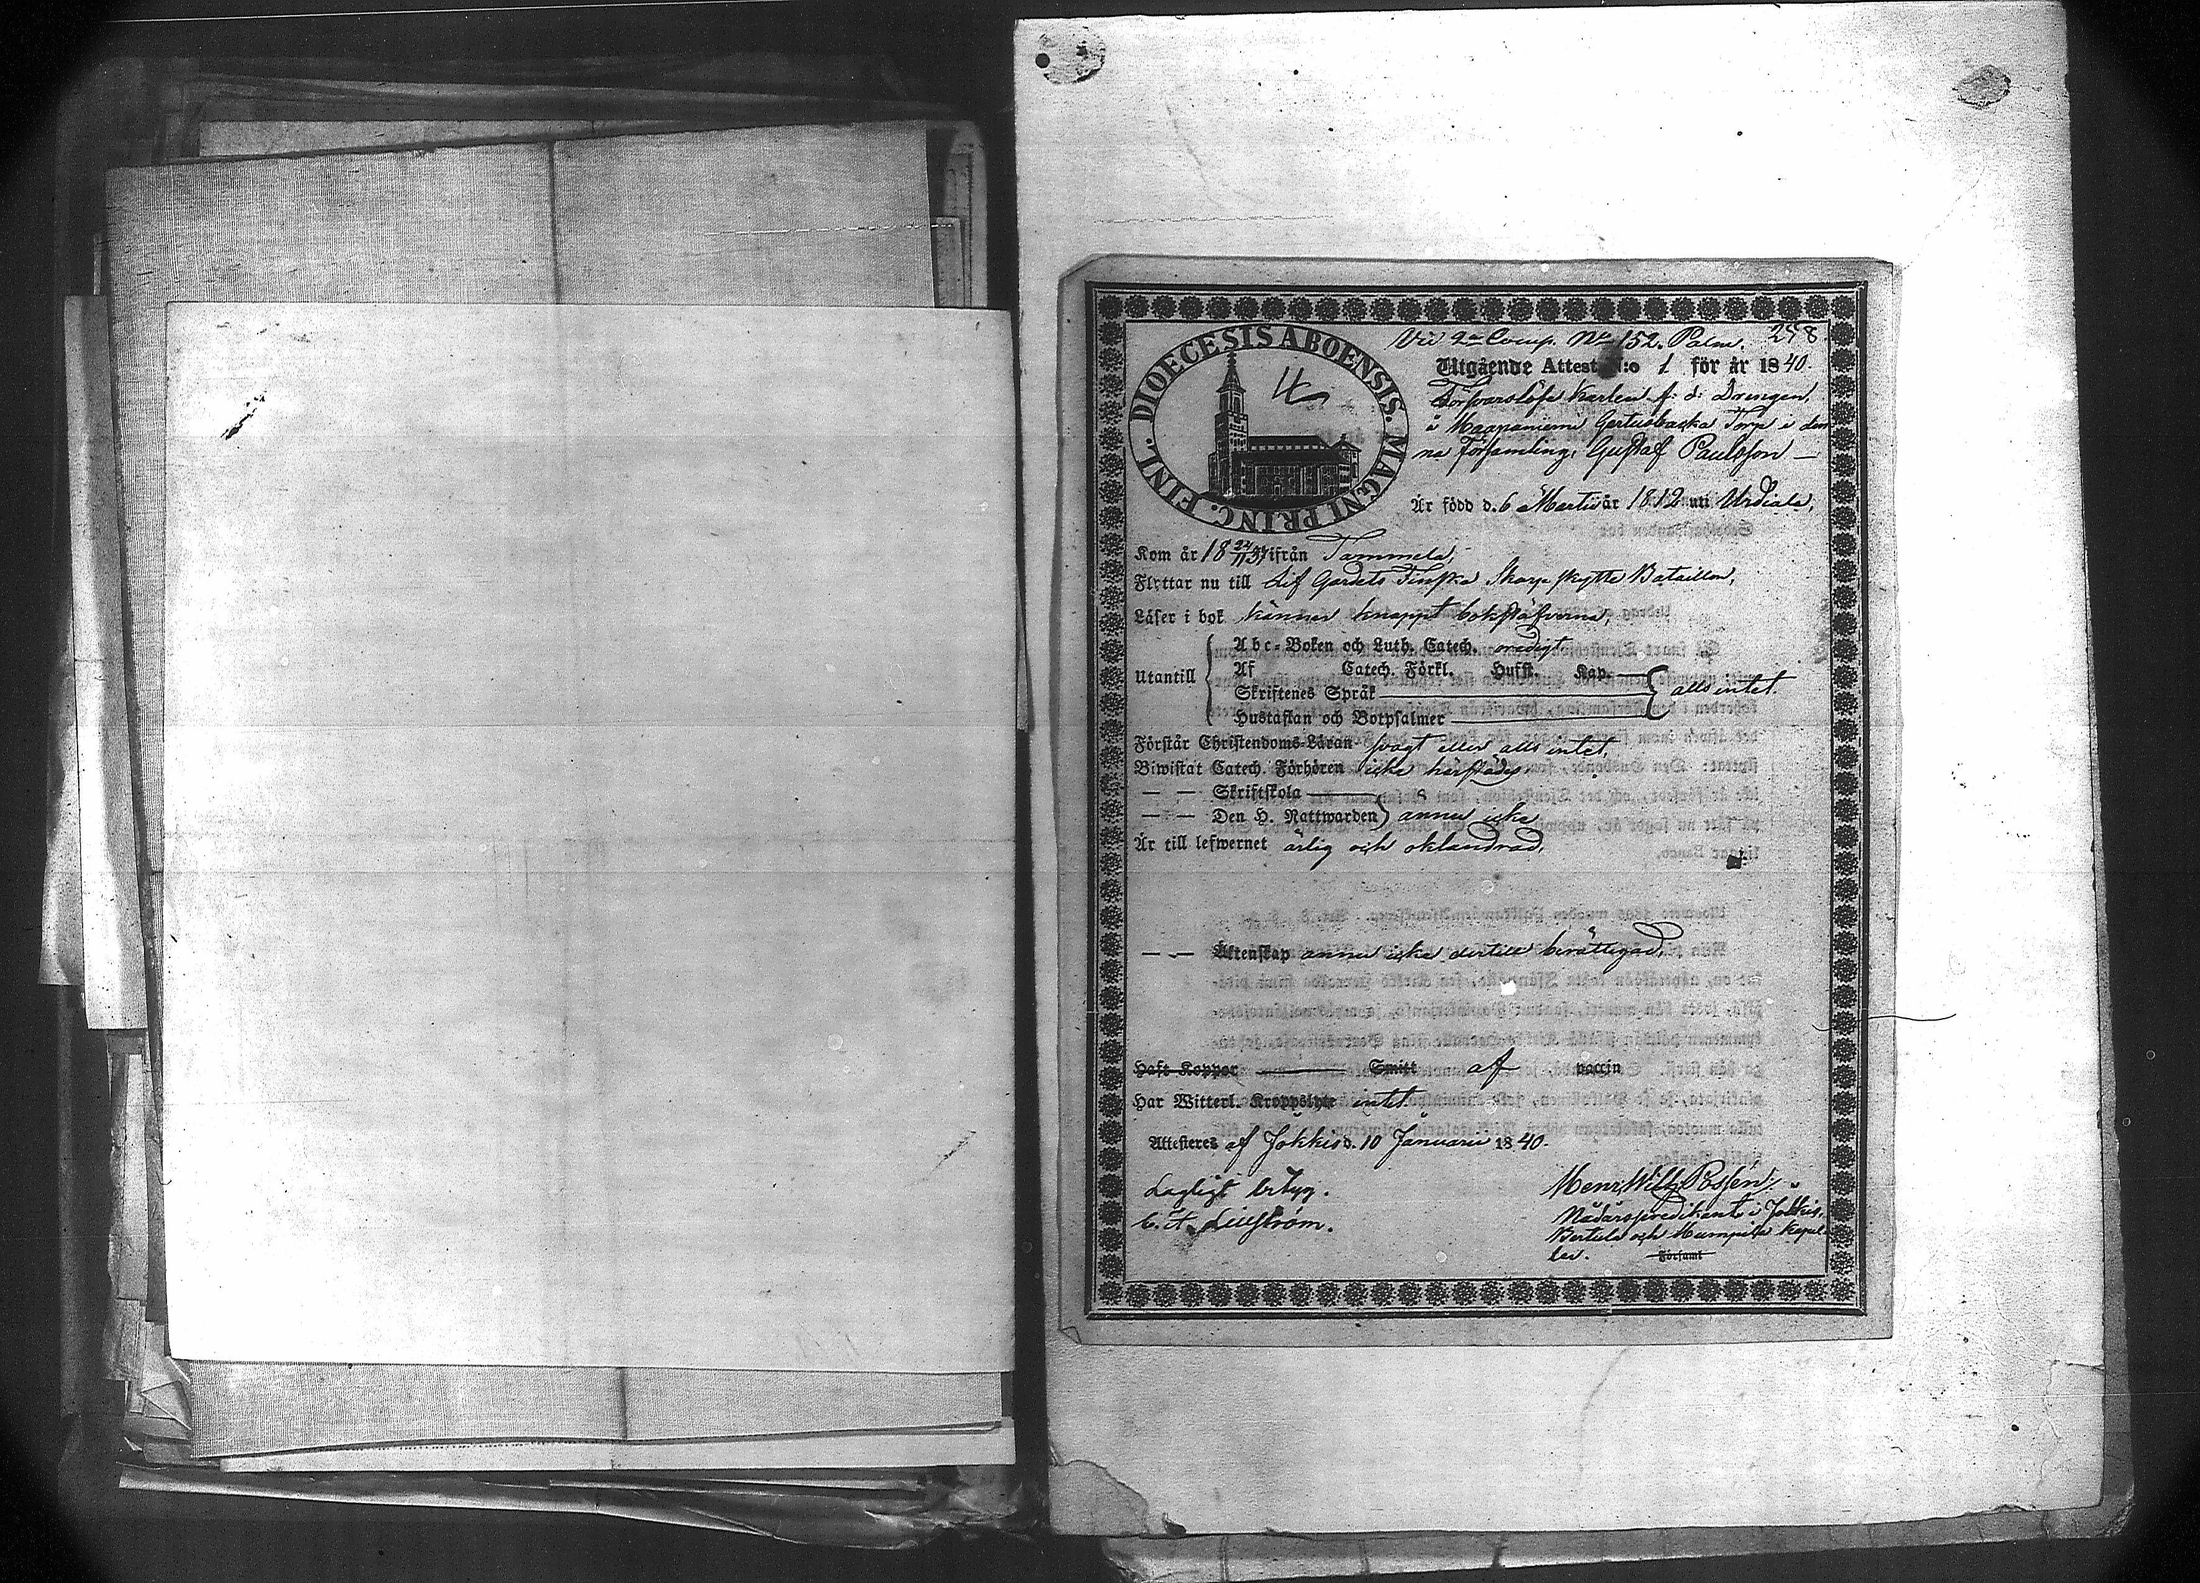 Vid 2a Comp. No 152. Palm. 248.
DIOECESIS ABOENSIS. MAGNI PRINC. FINL.
Utgående Attest N:o 1 för år 1840.
Försvarslöse Karlen f: d: Drengen,
i Haapaniemi Gertusbacka Torp i den
na Församling, Gustaf Paulsson —
Är född d. 6 Martii år 1812 uti Urdiala,
Kom år 18 ifrån Tammela,
Flyttar nu till Lif Gardets Finska Skarpskytte Bataillon,
Läser i bok känner knappt bokstäfverna,
Abc-Boken och Luth. Catech. oredigt
Utantill Af Catech. Förkl. Hufst. Kap.
Skriftenes Språk alls intet.
Hustaflan och Botpsalmer
Förstår Christendoms-Läran svagt eller alls intet,
Biwistat Catech. Förhören icke härstädes.
— — Skriftskola
— — Den H. Nattwarden annu icke
Är till lefwernet ärlig och oklandrad,
— — Äktenskap annu icke dertill berättigad,
Haft Koppor Smitt af vaccin
Har Witterl. Kroppslyte intet
Attesteres af Jokkis d. 10 Januarii 1840.
Lagligt betyg. Henr. Wilh. Rosén
C. A. Lillström. Nådårspredikant i Jokkis,
Bertula och Humpila Kapel-
ler. Församl